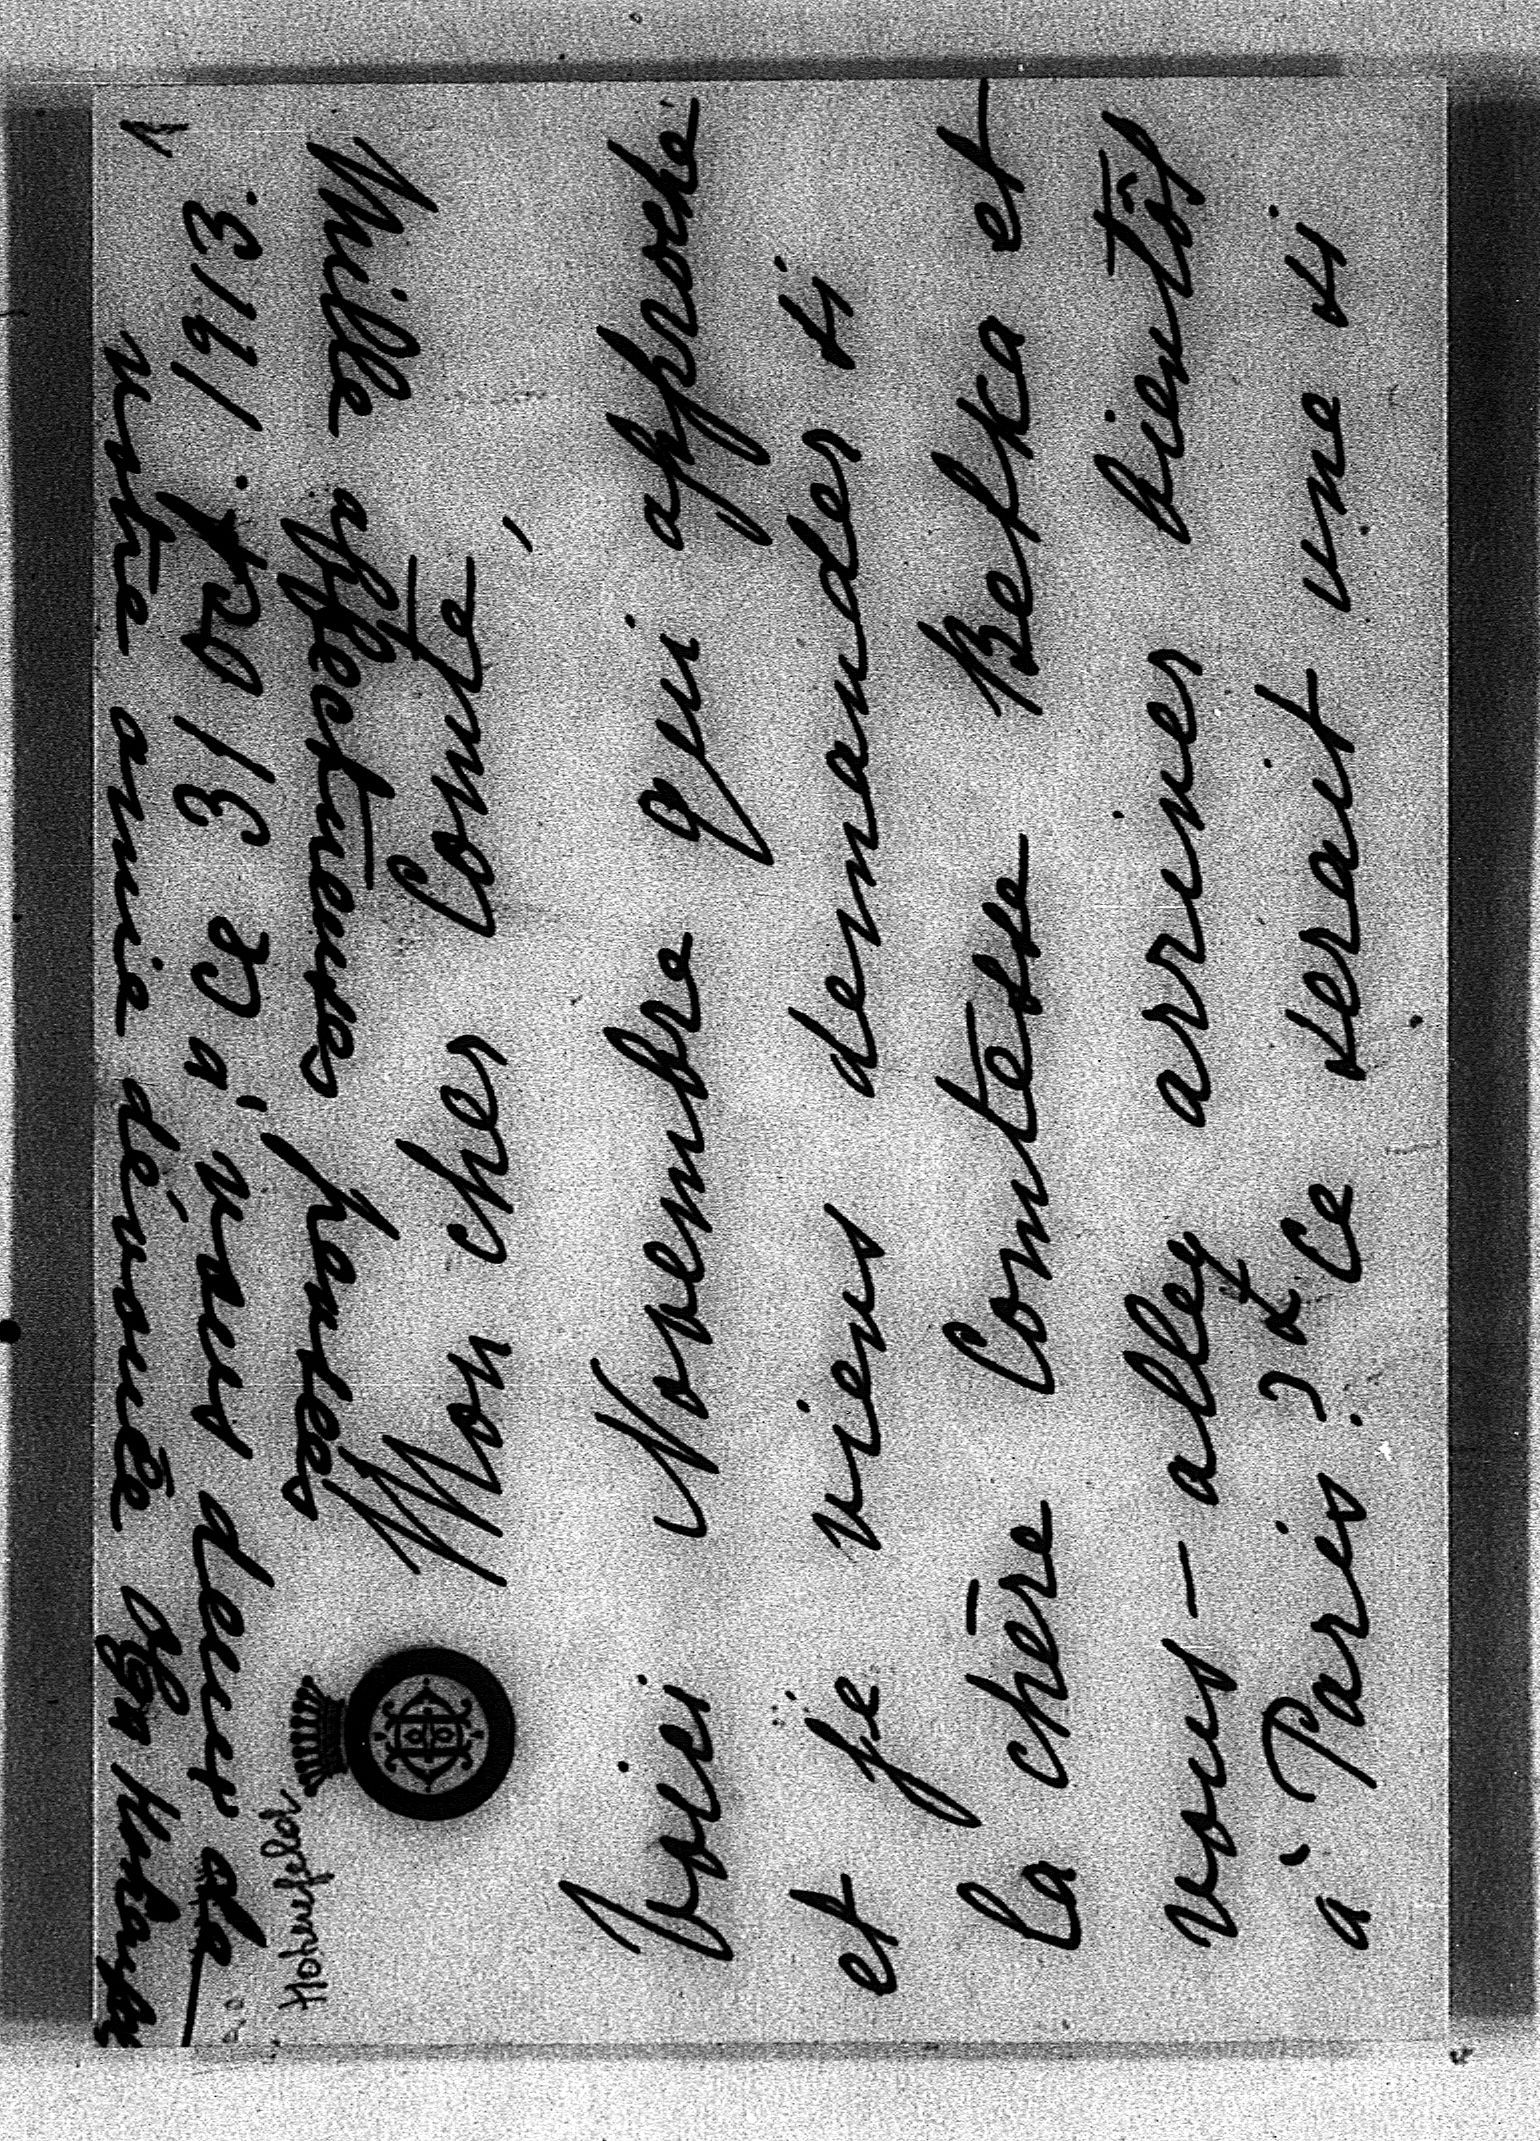 Hohenfeld
31 1913.
Mon cher Comte,
Voici Novembre qui approche
et je viens demander si
la chère Comtesse Betka et
vous - allez arriver bientôt
à Paris? Ce serait une si
Mille affectueuses pensées
à vous deux de
votre amie dévouée Olga